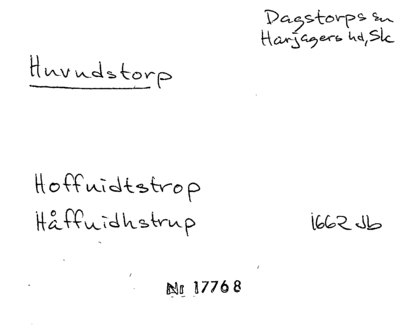 Dagstorps sn
Harjagers hd, Sk
Huvudstorp
Hoffuidtstrop
Håffuidhstrup 1662 Jb
Nr 17768